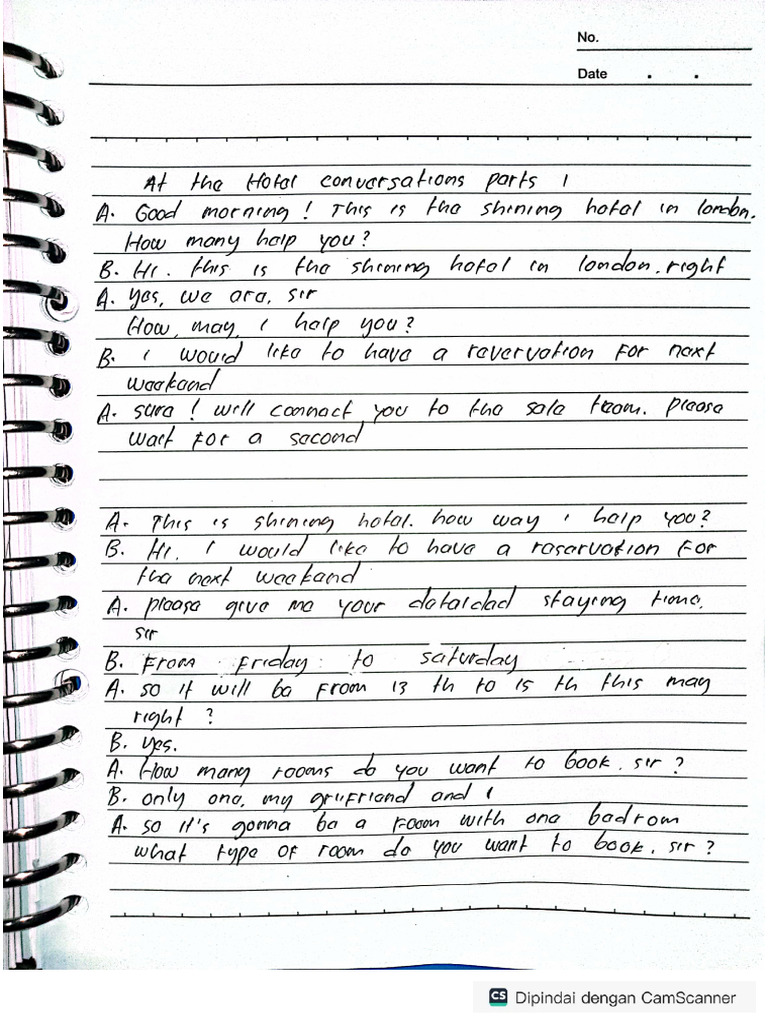 No.
Date . .
At the Hotel conversations parts 1
A. Good morning! This is the shining hotel in london.
How many help you?
B. Hi. this is the shining hotel in london. right
A. yes, we are, sir
How, may, i help you?
B. i would like to have a revervation for next
weekend
A. sure! will connect you to the sale team. please
wait for a second
A. This is shining hotel. how way i help you?
B. Hi. I would like to have a reservation for
the next weekend
A. please give me your detaided staying time.
sir
B. From Friday to saturday
A. so it will be from 13 th to 15 th this may
right?
B. yes.
A. How many rooms do you want to book. sir?
B. only one, my girlfriend and i
A. so it's gonna be a room with one bedrom
what type of room do you want to book. sir?
CS Dipindai dengan CamScanner